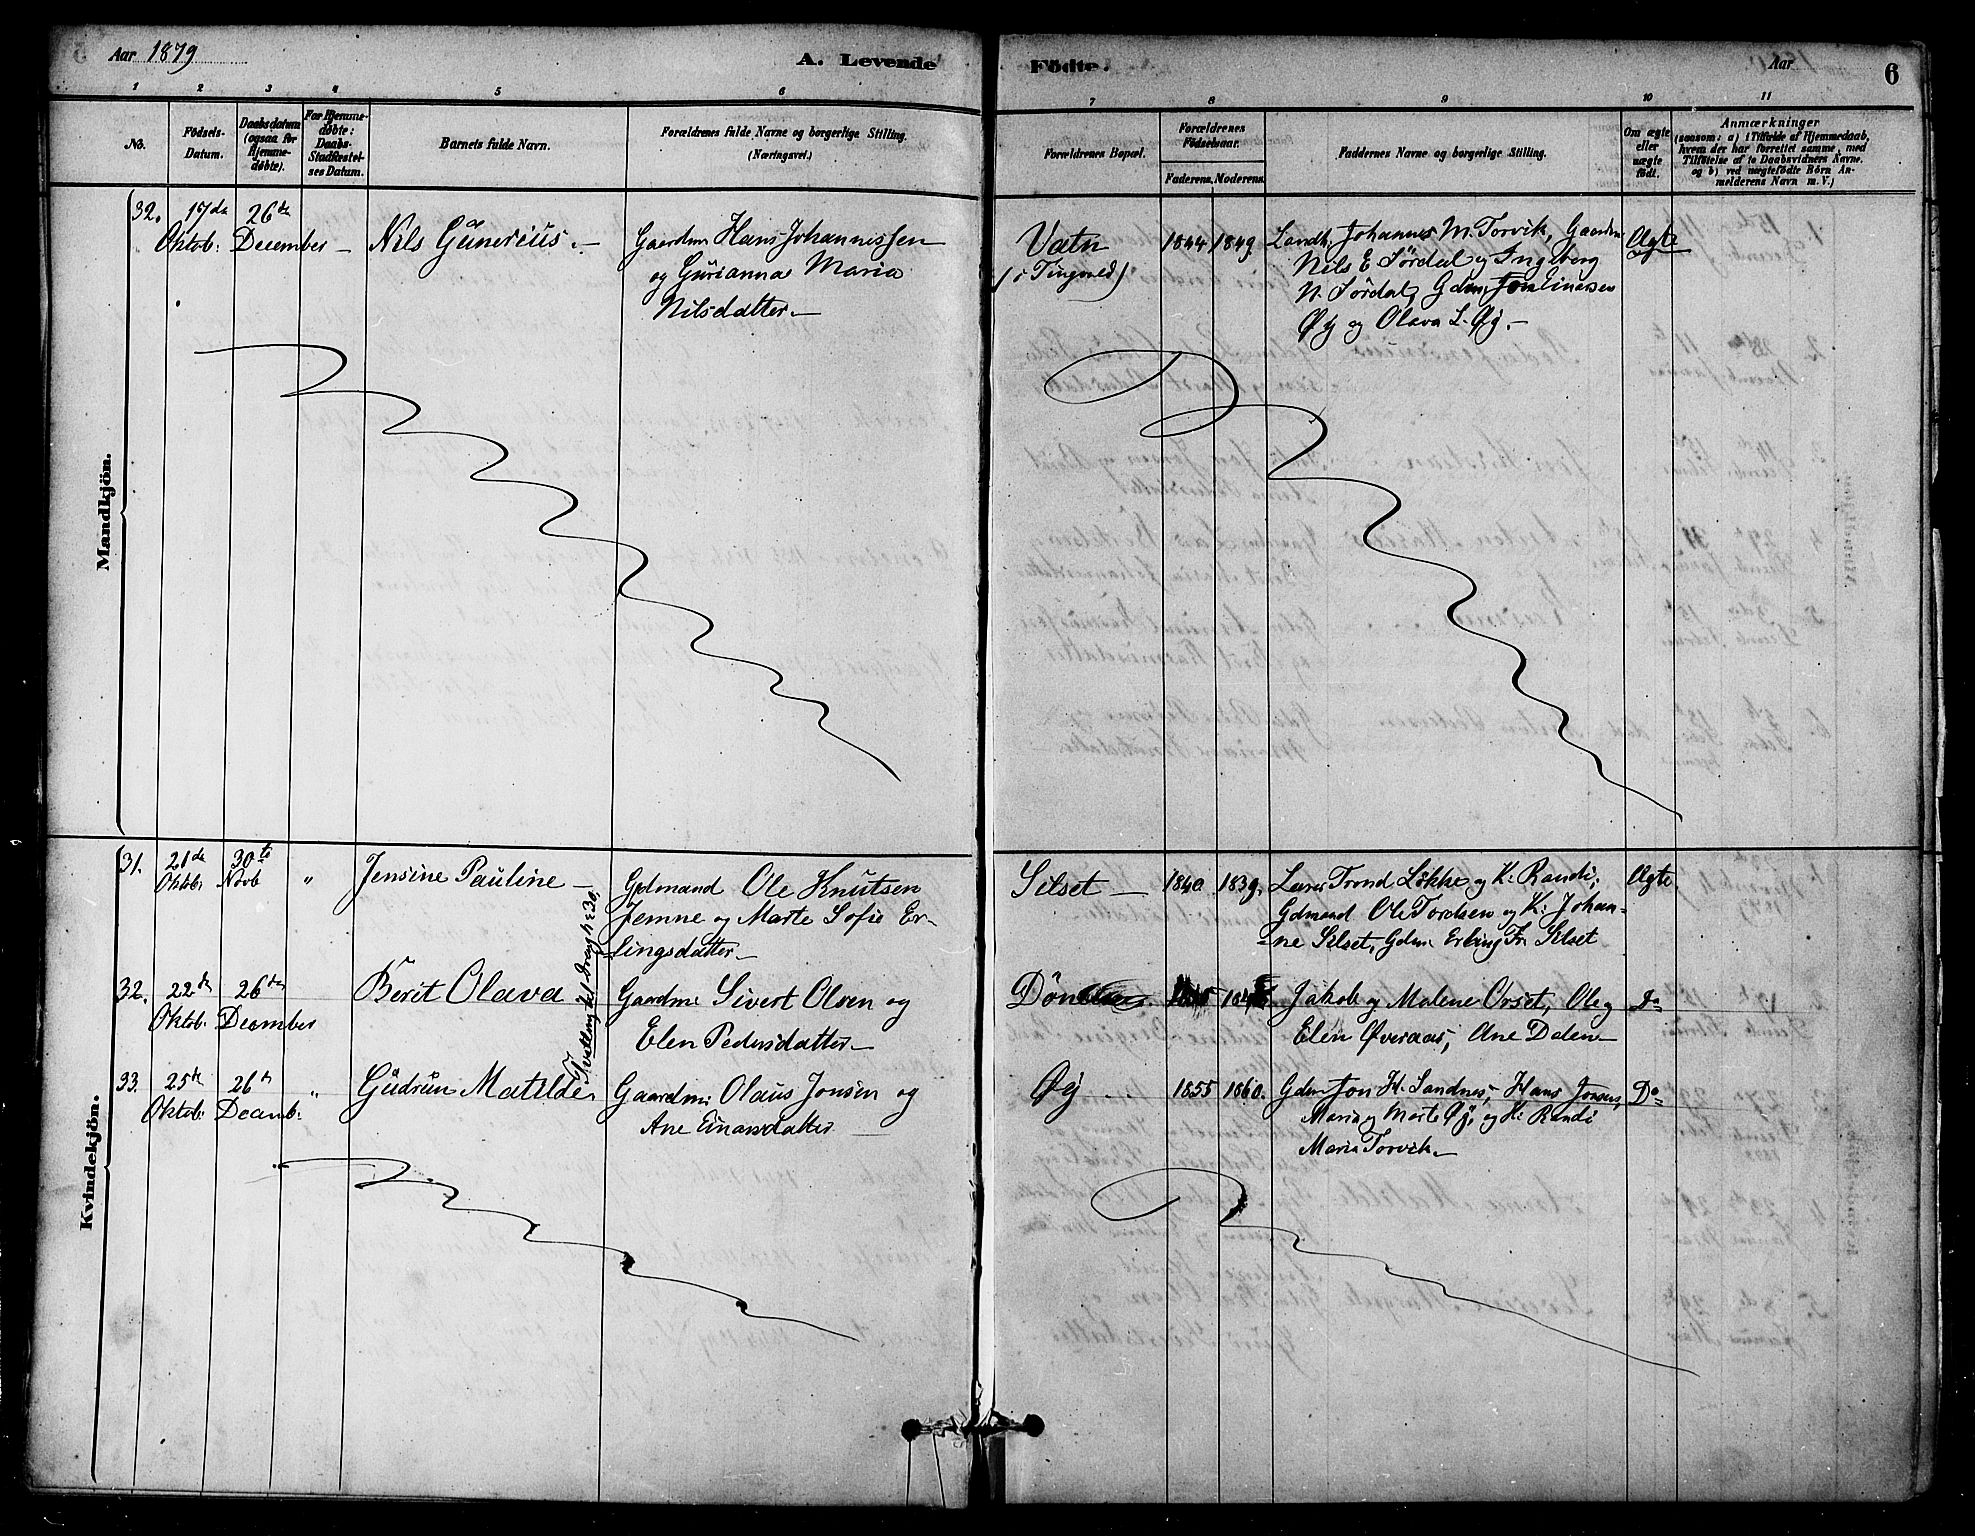 Aar 1879
A. Levende
Födte.
Aar
6
1 2 3 4 5 6 7 8 9 10 11
No.
Födsels-
Datum.
Daabsdatum
(ogsaa for
Hjemme-
døbte).
For Hjemme-
døbte:
Daabs-
Stadfæstel-
ses Datum.
Barnets fulde Navn.
Forældrenes fulde Navne og borgerlige Stilling.
(Næringsvei.)
Forældrenes Bopæl.
Forældrenes
Födselsaar.
Faderens. Moderens.
Faddernes Navne og borgerlige Stilling.
Om ægte
eller
uægte
født.
Anmærkninger
(saasom: a) i Tilfælde af Hjemmedaab,
hvem der har forrettet samme, med
Tilföielse af to Daabsvidners Navne.
og b) ved uægtefödte Börn An-
melderens Navn m. V.)
Mandkjön.
32. 17de 26de
Oktob: December – Nils Gunerius. – Gaardm Hans Johannessen
og Gurianna Maria
Nilsdatter. –
Vatn 1844 1849. Landh. Johannes M. Torvik, Gaardm
(i Tingvold) Nils E Sördal og Ingeberg
N. Sördal, Gdm. Einarsen
Øy og Olava L. Øy. –
Ægte
Kvindekjön.
31. 21de 30te
Oktob: Novb " Jensine Pauline – Gdmand Ole Knutsen
Jemne og Marte Sofie Er-
lingsdatter –
Silset – 1840. 1839. Lærer Trond Løkke og K: Randi;
Gdmand Ole Tordsen og K: Johan-
ne Silset, Gdm. Erling Silset
Ægte
Tvilling til Drengb: 30.
32. 22de 26de
Oktob: December Berit Olava Gaardm: Sivert Olsen og
Elen Pedersdatter –
Jakob og Malene Orset, Ole og
Elen Øveraas; Ane Dalen –
Do
33. 25de 26de
Oktob: Decemb: " Gudrun Matilde. Gaardm: Olaus Jonsen og
Ane Einarsdatter
Øy 1855 1860. Gdm. Jon H. Sandnes; Hans Jonsen,
Maria og Marte Øy, og K: Randi
Maria Torvik. –
Do